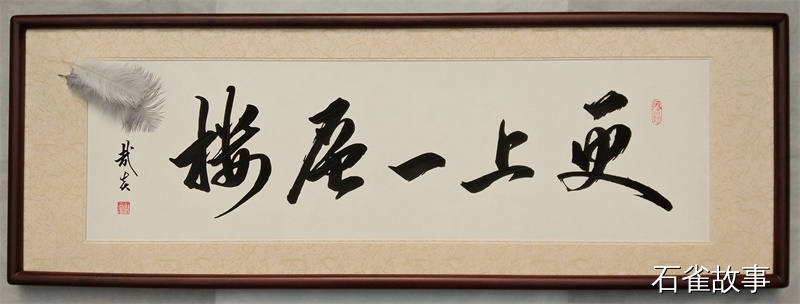 更上一層樓
石雀故事